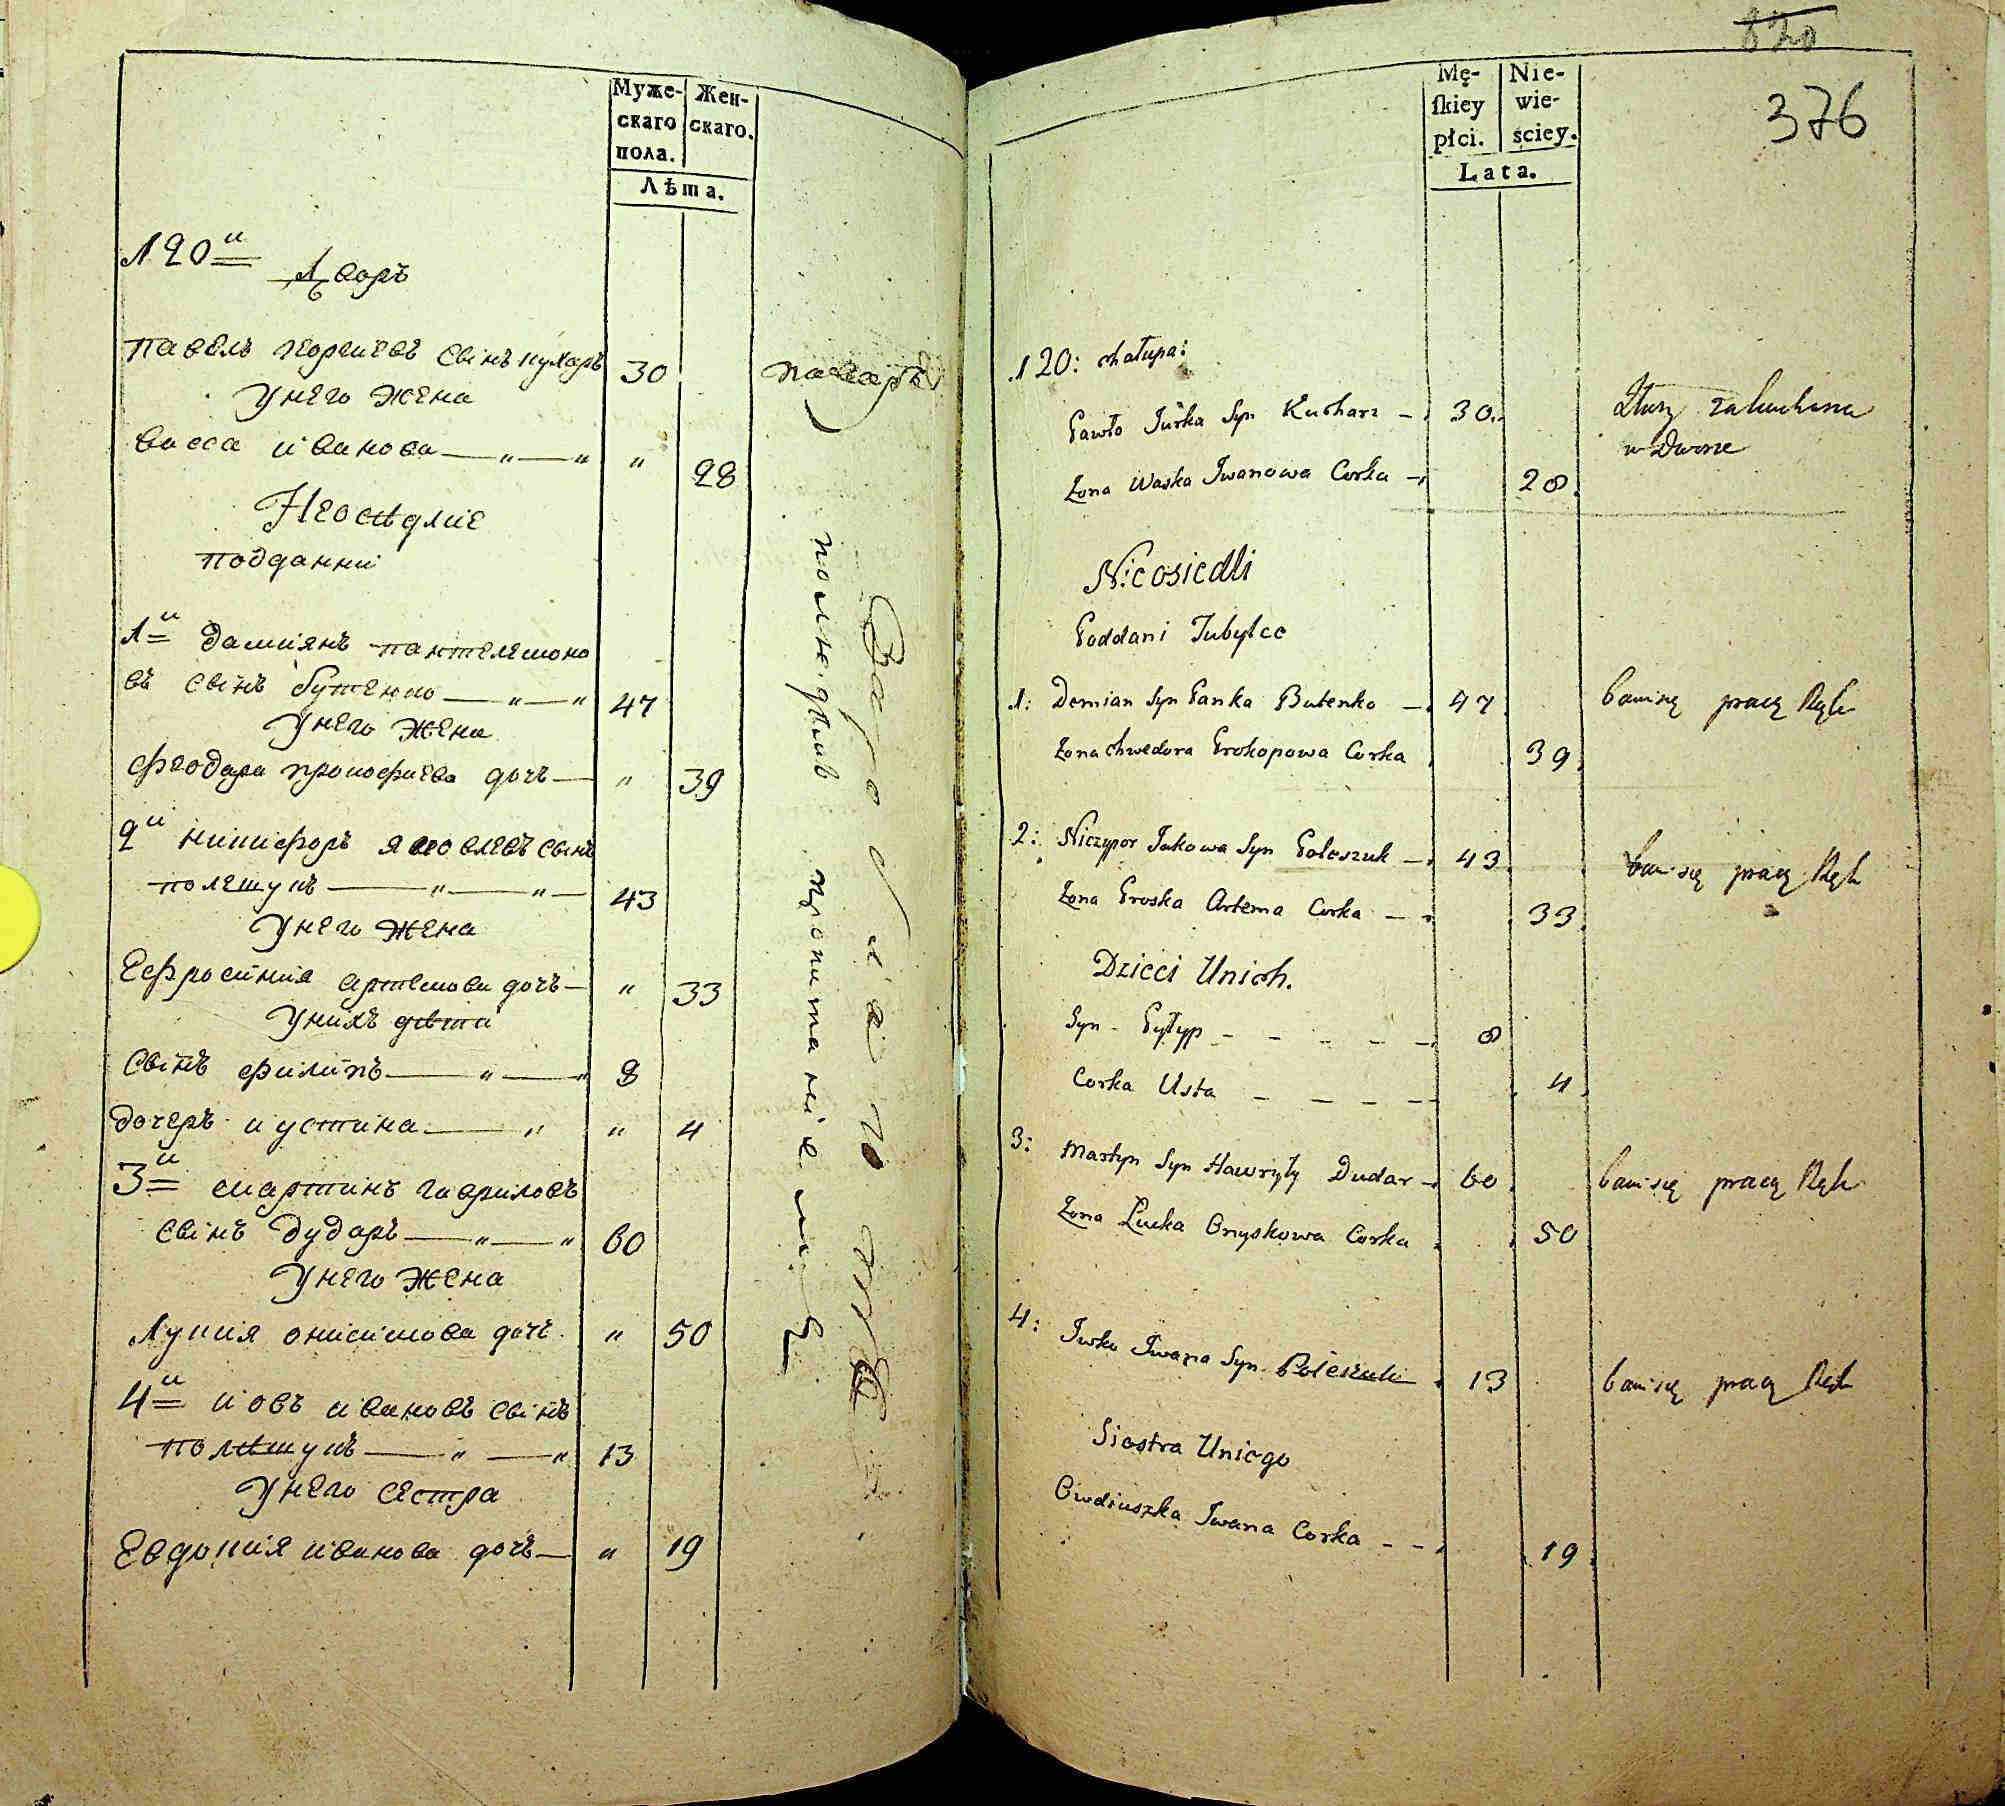 Муже-
скаго
пола.
Жен-
скаго.
Лѣта.
120й
Дворъ
Павелъ Юргиевъ сынъ кухаръ 30 поваръ
У него жена
Васса иванова — " — " " 28
Неосѣдлие
подданни
1й дамиянъ пантелемоно
въ сынъ бутенко — " — " 47
У него жена
феодора прокофиева дочъ — " 39
2й никифоръ яковлевъ сынъ
полешукъ — " — " — 43
У него жена
Ефросиния артемова дочъ — " 33
У нихъ дѣти
Сынъ филипъ — " — " 8
дочеръ иустина — " " 4
3й мартинъ гавриловъ
сынъ Дударъ — " — " 60
У него жена
Лукия онисимова дочъ " 50
4й иовъ ивановъ сынъ
полѣшукъ — " — " 13
У него сестра
Евдокия иванова дочъ — " 19
пропитаніе
820
376
Mę-
ſkiey
płci.
Nie-
wie-
ściey.
Lata.
120: chałupa:
Pawło Jurka Syn Kucharz — 30.
w Dworze
Zona Waska Jwanowa Corka — 28.
Nieosiedli
Poddani Tubylce
1: Demian Syn Panka Butenko — 47 bawi się pracą Rąk
Zona Chwedora Prokopowa Corka 39
2: Niczypor Jakowa Syn Poleszuk — 43 bawi się pracą Rąk
Zona Proska Artema Corka — 33
Dzieci Unich.
Syn - Pyłyp - - - - - 8
Corka Usta - - - - 4
3: Martyn Syn Hawryły Dudar — 60 bawi się pracą Rąk
Zona Łucka Onyskowa Corka 50
4: Jwko Jwana Syn Poleszuk 13 bawi się pracą Rąk
Siostra Uniego
Owdiuszka Jwana Corka - - 19